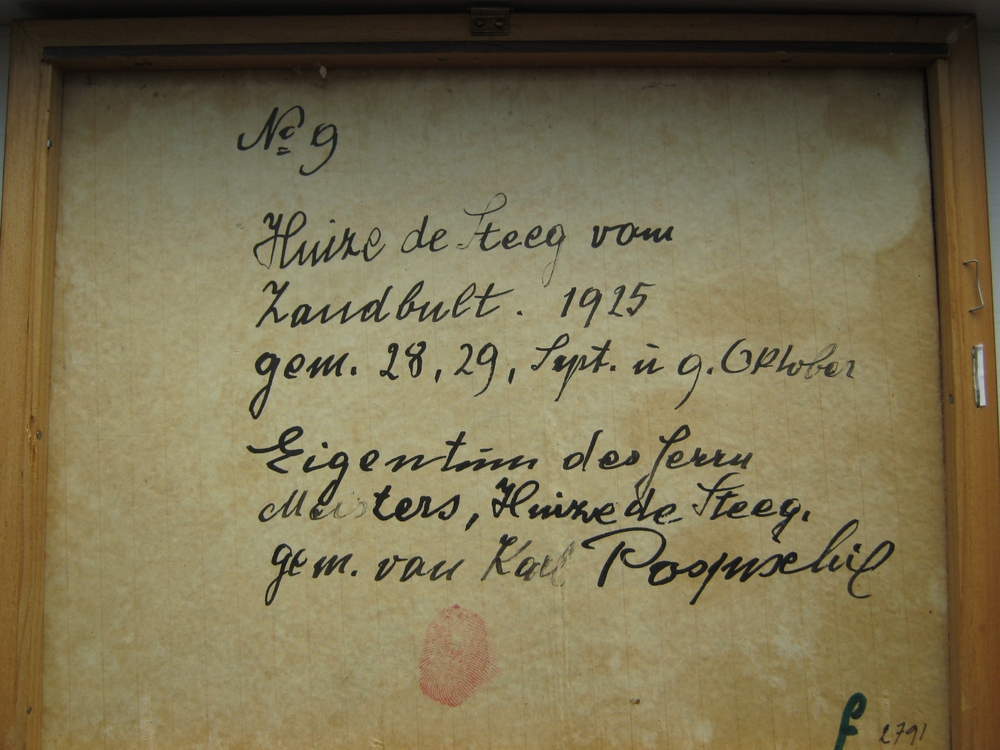 No 9
Huize de Steeg vom
Zandbult. 1925
gem. 28, 29, Sept. ü 9. Oktober
Eigentum des Herrn
Meisters, Huize de Steeg.
gem. van Karl Pospischil
f 2791